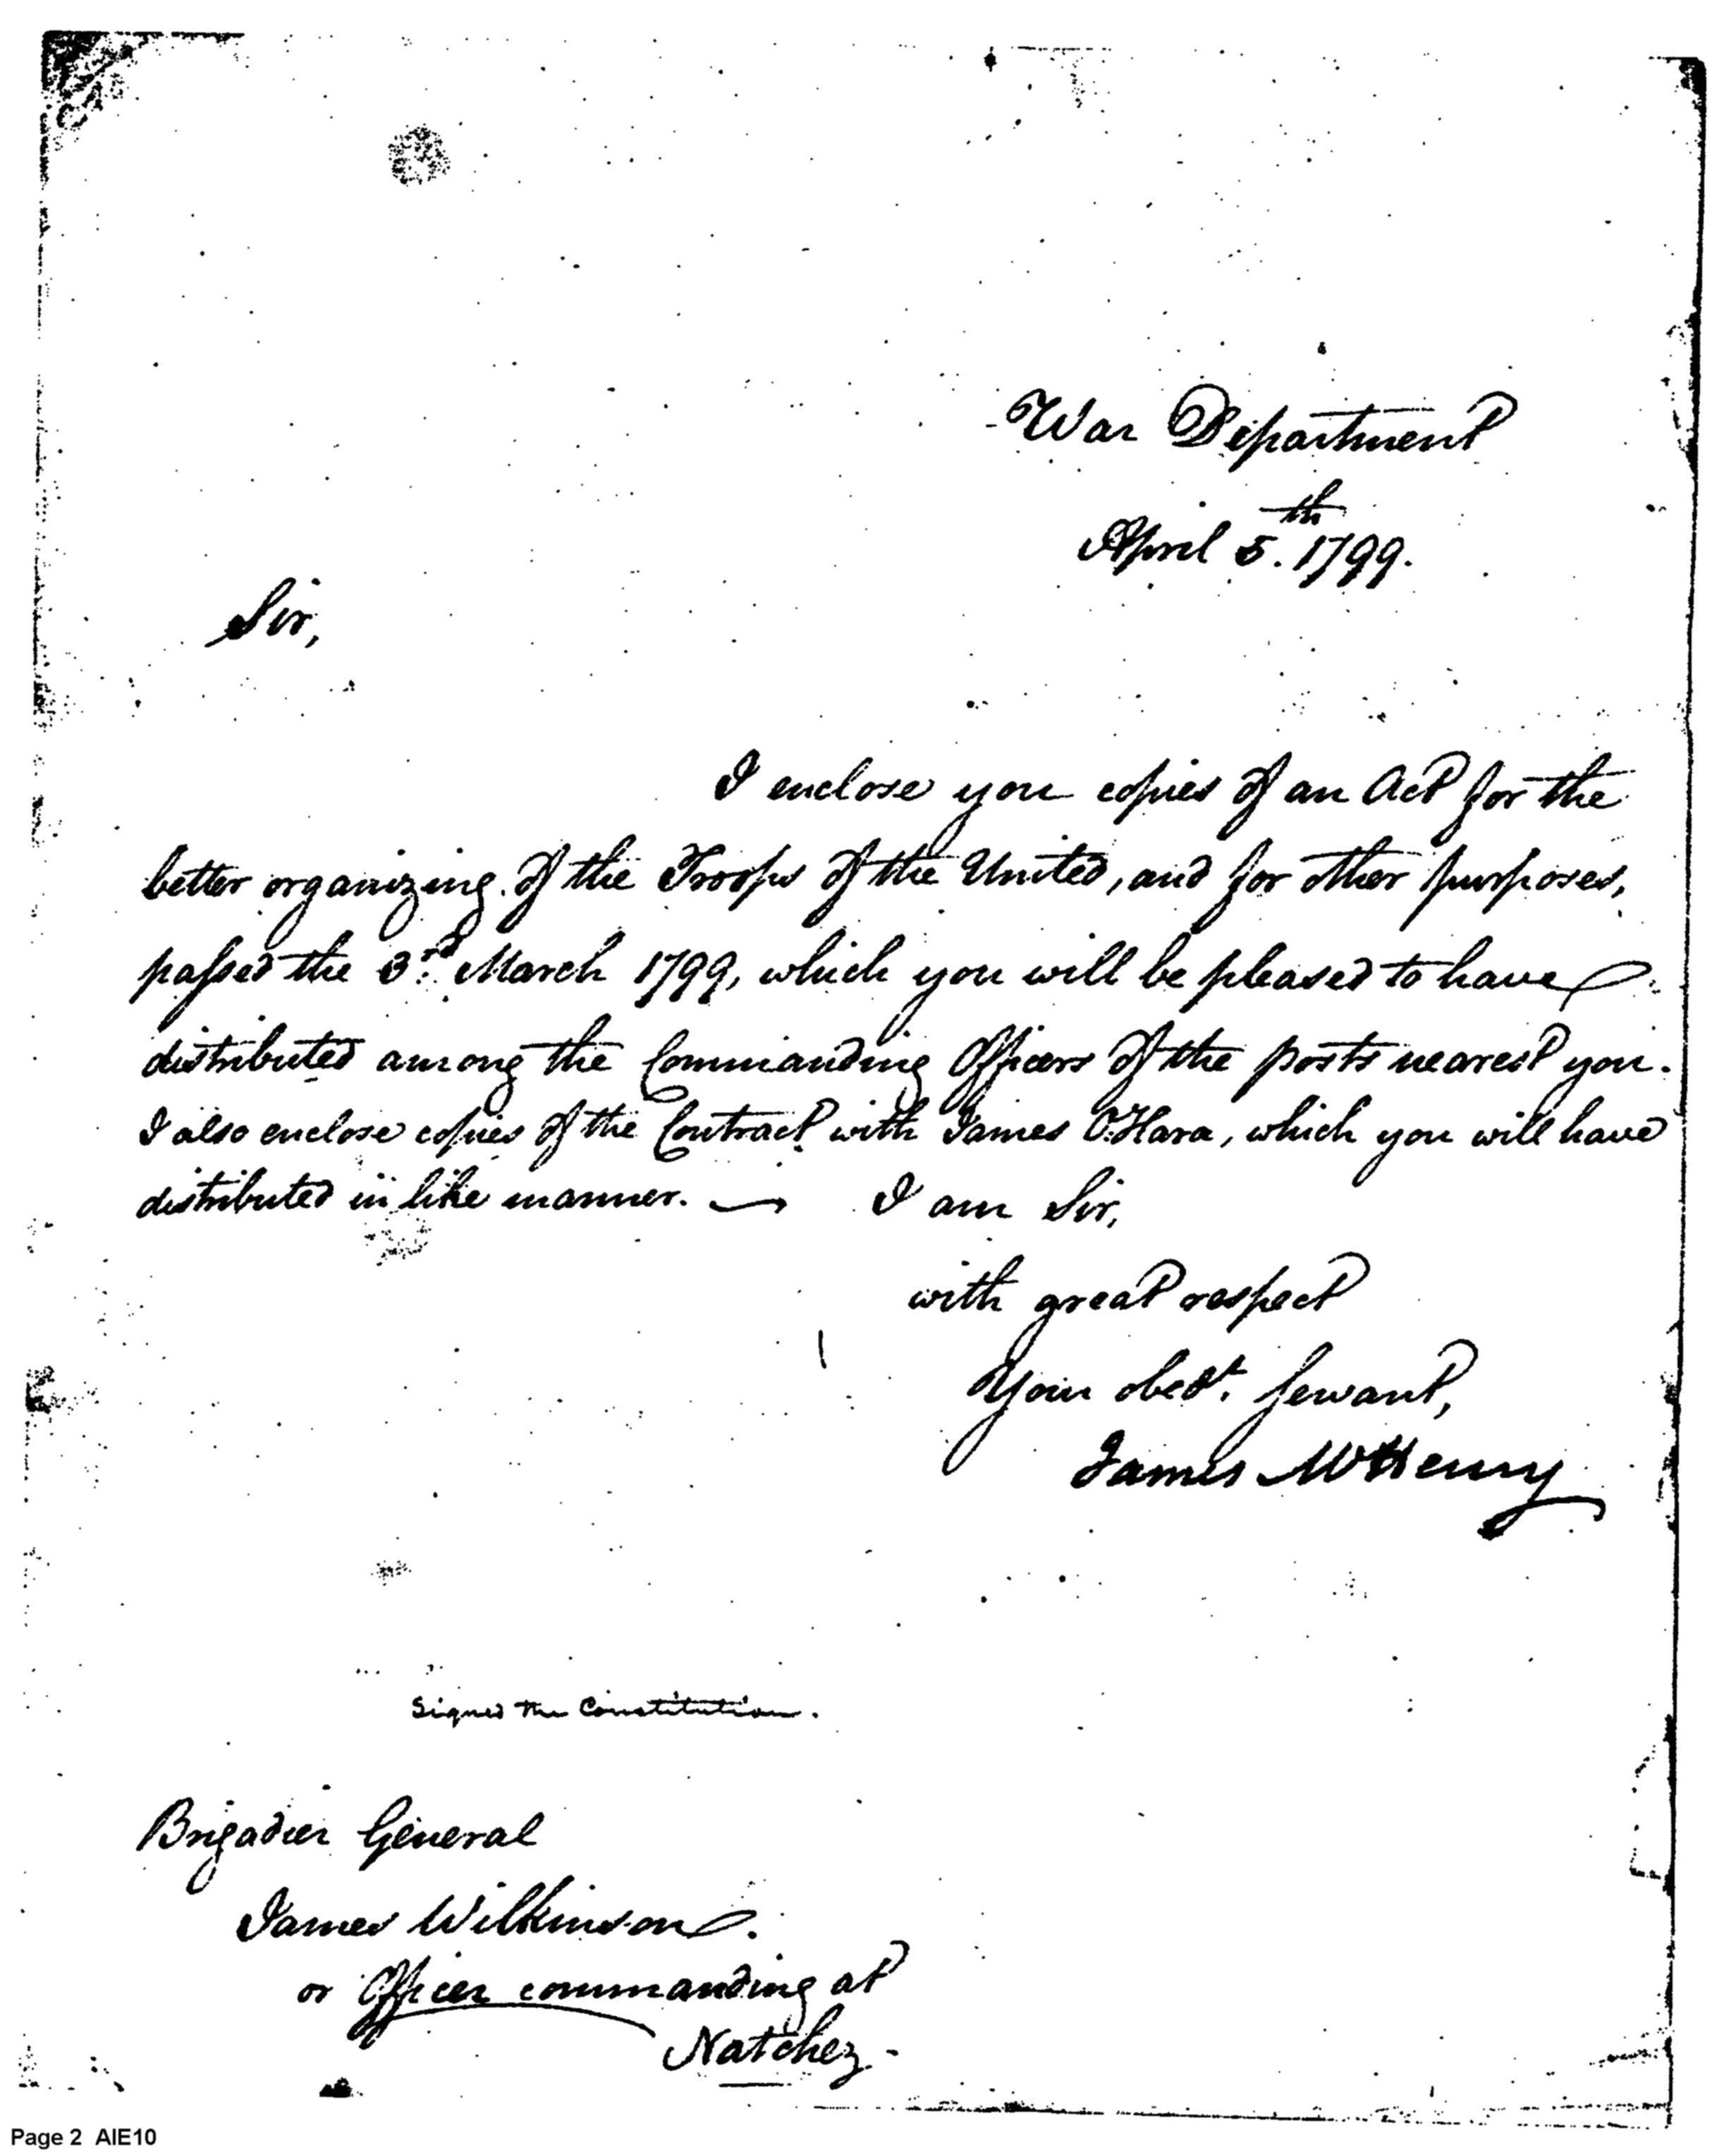 War Department
April 5th. 1799.
Sir,
I enclose you copies of an Act for the
better organizing of the Troops of the United, and for other purposes,
passed the 3rd. March 1799, which you will be pleased to have
distributed among the Commanding Officers of the posts nearest you.
I also enclose copies of the Contract with James O.Hara, which you will have
distributed in like manner. — I am Sir,
with great respect
Your obedt. Servant,
James McHenry
Signed the Constitution.
Brigadier General
James Wilkinson.
or Officer commanding at
Natchez.
Page 2 AIE10